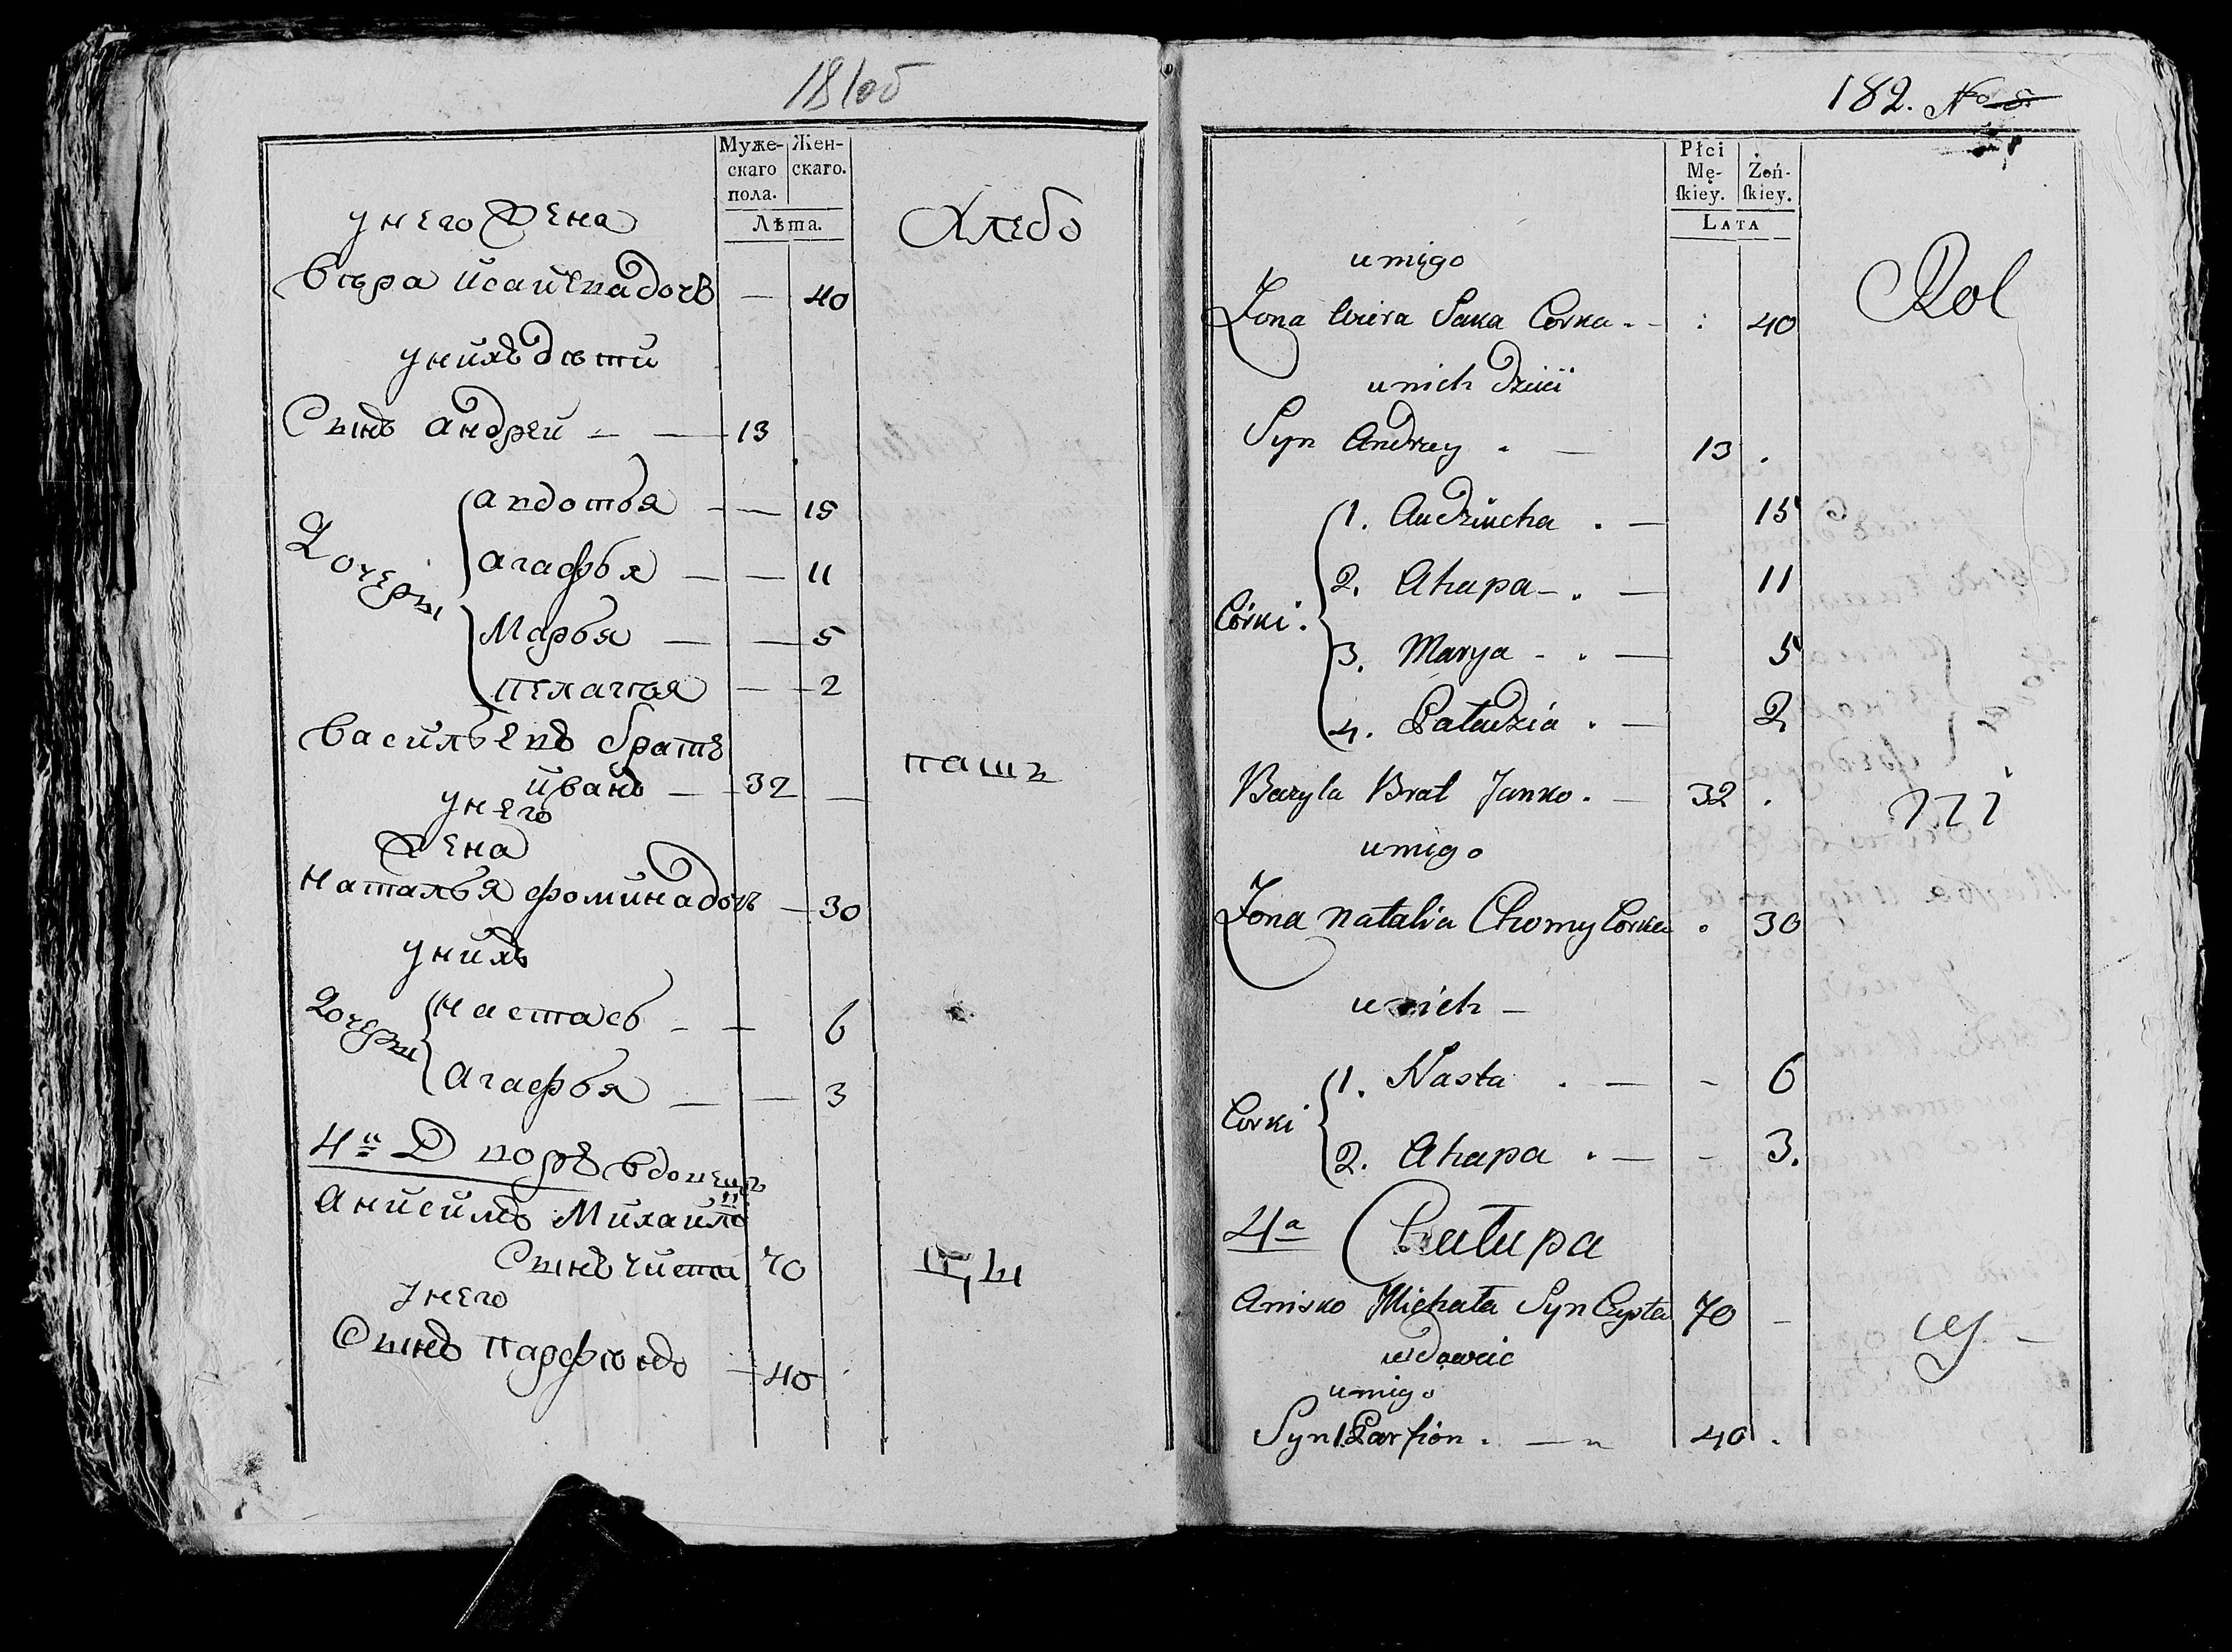 181об
Муже-
скаго
пола.
Жен-
скаго.
Лѣта.
унего Жена
Хлебо
Вѣра Исаивадочь — 40
унихъ дѣти
Сынъ андрей — — 13
Дочеры
авдотья — — 15
агафья — — 11
Марья — — 5
пелагѣя — — 2
Васильевъ братъ
иванъ — 32 —
пашъ
унего
Жена
наталья фоминадочь — 30
унихъ
Дочеры
настась — — 6
Агафья — — 3
4й Дворъ вдовецъ
Анисимъ Михаило
Сынъ чисти 70
цы
унего
Сынъ парфѣнъ — 40
182. No 5
Płci
Mę-
skiey.
Żeń-
skiey.
LATA
uniego
Rol
Żona Wiera Saka Corka . - : 40
unich dzieci
Syn Andrzey . — 13 .
Córki.
1. Audziucha . — 15
2. Ahapa - . — 11
3. Marya - . — 5
4. Pałudzia . — 2
Bazyla Brat Janko . — 32 .
ni
uniego
Żona natalia Chomy Corka . 30
unich —
Corki
1. Nasta . — - 6
2. Ahapa . — - 3.
4a Chałupa
Anisko Michała Syn Czysta 70 -
cy —
wdowiec
uniego
Syn 1. Parfion . — 40 .